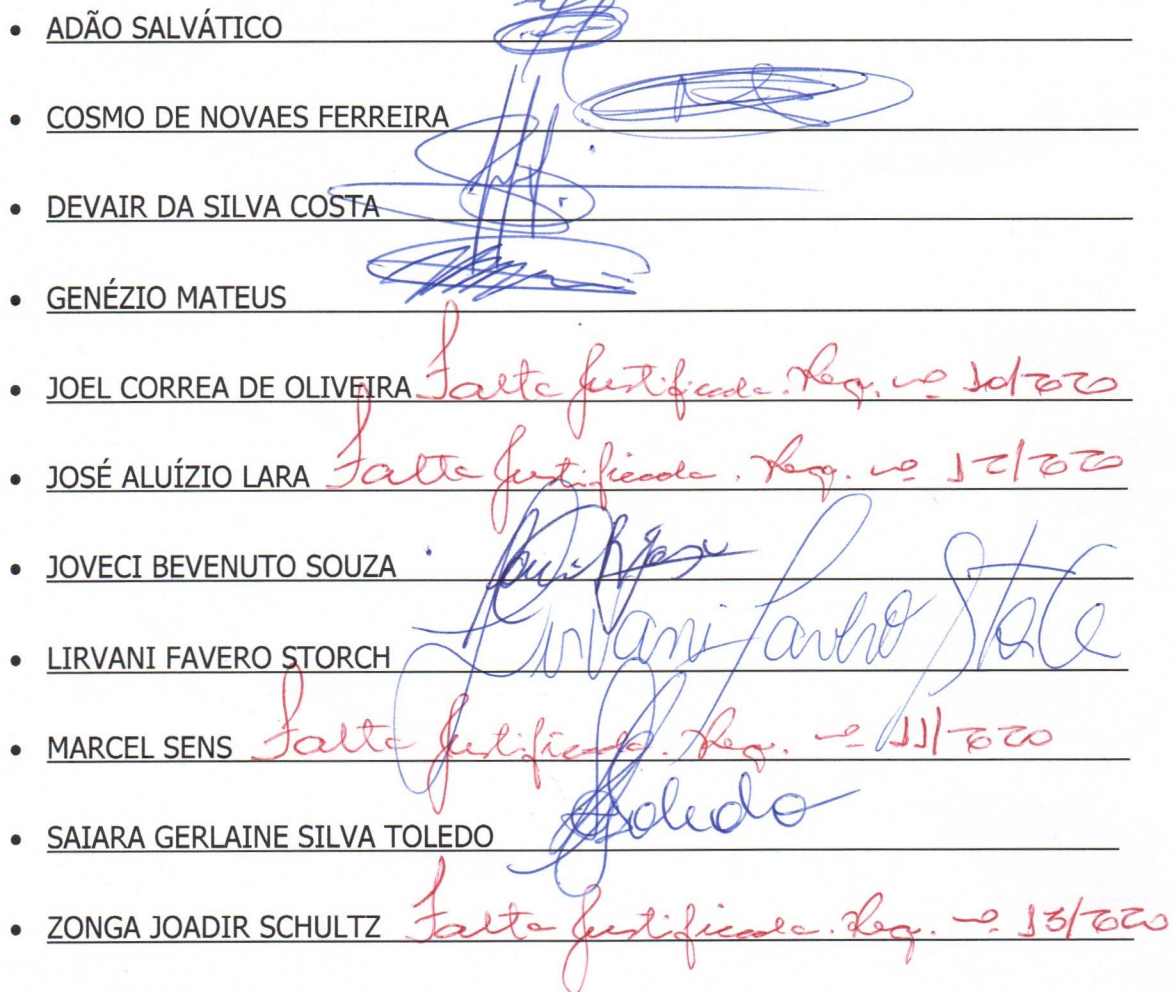 • ADÃO SALVÁTICO
• COSMO DE NOVAES FERREIRA
• DEVAIR DA SILVA COSTA
• GENÉZIO MATEUS
• JOEL CORREA DE OLIVEIRA Falta Justificada. Req. nº 10/2020
• JOSÉ ALUÍZIO LARA Falta Justificada. Req. nº 12/2020
• JOVECI BEVENUTO SOUZA
• LIRVANI FAVERO STORCH Lirvani Favero
• MARCEL SENS Falta Justificada. Req. nº 11/2020
• SAIARA GERLAINE SILVA TOLEDO Toledo
• ZONGA JOADIR SCHULTZ Falta Justificada. Req. nº 13/2020